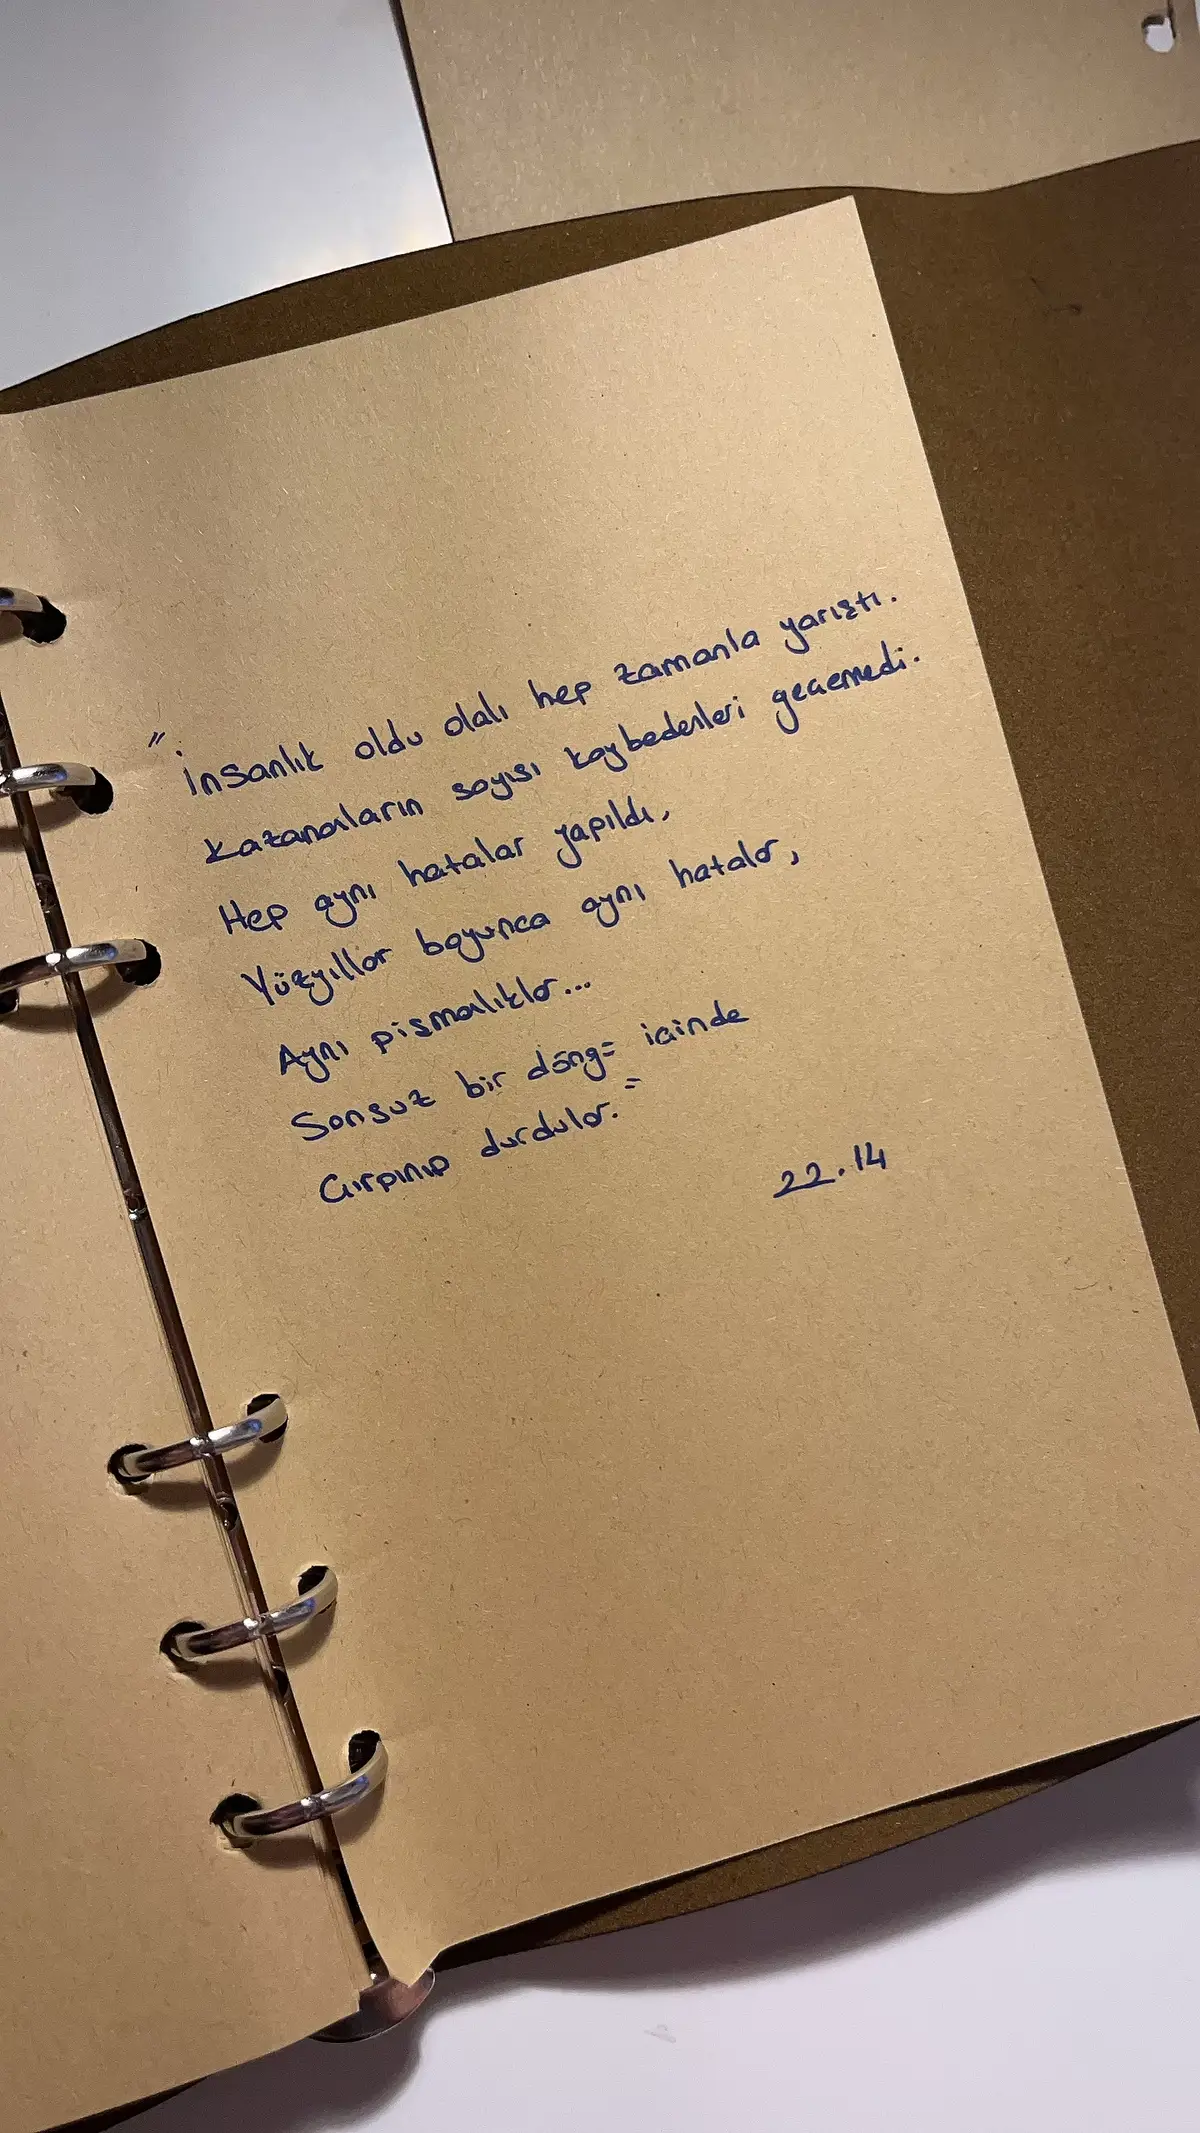 " İnsanlık oldu olalı hep zamanla yarıştı.
Kazananların sayısı kaybedenleri geçemedi.
Hep aynı hatalar yapıldı,
Yüzyıllar boyunca aynı hatalar,
Aynı pişmanlıklar...
Sonsuz bir döngü içinde
Çırpınıp durdular."
22.14